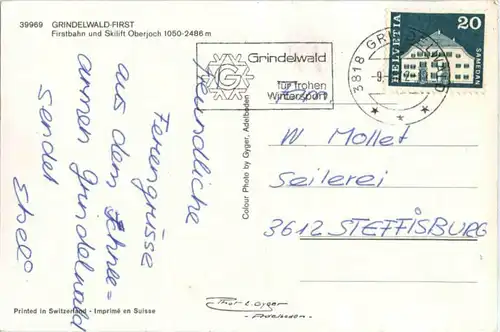 39969 GRINDELWALD-FIRST
Firstbahn und Skilift Oberjoch 1050-2486 m
Grindelwald
für frohen
Wintersport
3818 GRINDELWALD
HELVETIA
20
SAMEDAN
freundliche
Feriengrüsse
aus dem Schnee=
armen Grindelwald
sendet
Colour Photo by Gyger, Adelboden
W. Mollet
Seilerei
3612 STEFFISBURG
Printed in Switzerland - Imprimé en Suisse
Phot. E. Gyger
Adelboden